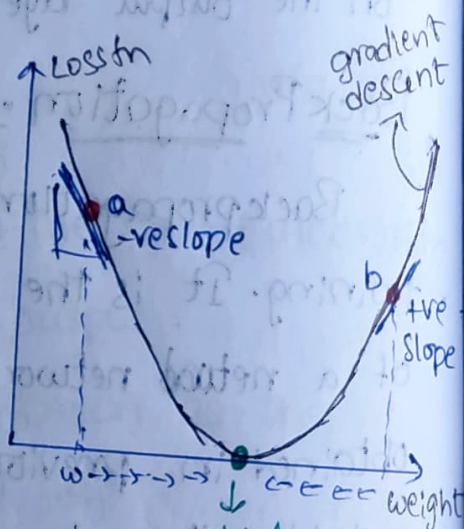 Loss fn
gradient
descent
a
-ve slope
b
+ve
slope
w
weight